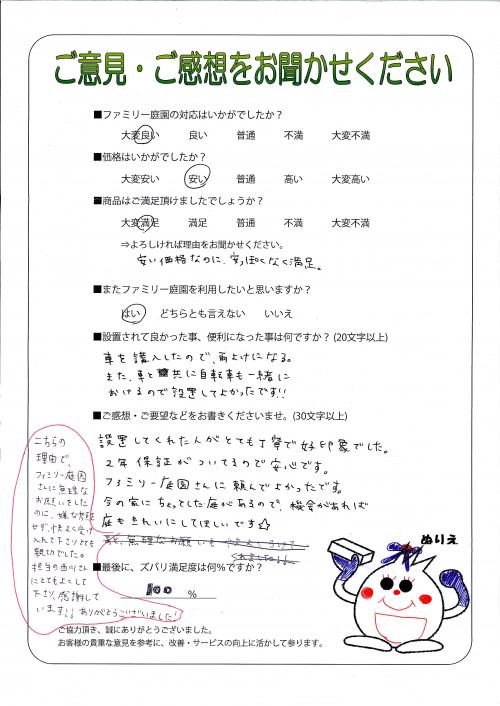 ご意見・ご感想をお聞かせください
■ファミリー庭園の対応はいかがでしたか？
大変良い 良い 普通 不満 大変不満
■価格はいかがでしたか？
大変安い 安い 普通 高い 大変高い
■商品はご満足頂けましたでしょうか？
大変満足 満足 普通 不満 大変不満
⇒よろしければ理由をお聞かせください。
安い価格なのに、安っぽくなく満足。
■またファミリー庭園を利用したいと思いますか？
はい どちらとも言えない いいえ
■設置されて良かった事、便利になった事は何ですか？(20文字以上)
車を購入したので、雨よけになる。
また、車と共に自転車も一緒に
おけるので設置してよかったです!!
■ご感想・ご要望などをお書きくださいませ。(30文字以上)
設置してくれた人がとても丁寧で好印象でした。
2年保証がついてるので安心です。
ファミリー庭園さんに頼んでよかったです。
今の家にちょっとした庭があるので、機会があれば
庭もきれいにしてほしいです☆
あと、無理なお願いも
■最後に、ズバリ満足度は何％ですか？
100 %
こちらの
理由で、
ファミリー庭園
さんに無理な
お願いをした
のに、嫌な顔
せず、快よく受け
入れて下さりとても
親切でした。
担当の さん
にとてもよくして
下さり、感謝して
います!! ありがとうございました!
ぬりえ
ご協力頂き、誠にありがとうございました。
お客様の貴重な意見を参考に、改善・サービスの向上に活かして参ります。